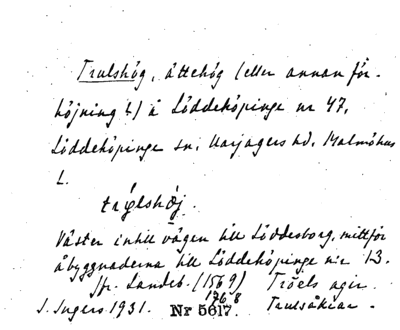 Trulshög, ättehög (eller annan för-
höjning?) å Löddeköpinge nr 47,
Löddeköpinge sn. Harjagers hd. Malmöhus
L.
Väster intill vägen till Löddesborg, mittför
åbyggnaderna till Löddeköpinge nr 13.
Jfr. Landeb. (1569) Troels agir.
1768 Trulsåkrar.
S. Ingers. 1931. Nr 5617.